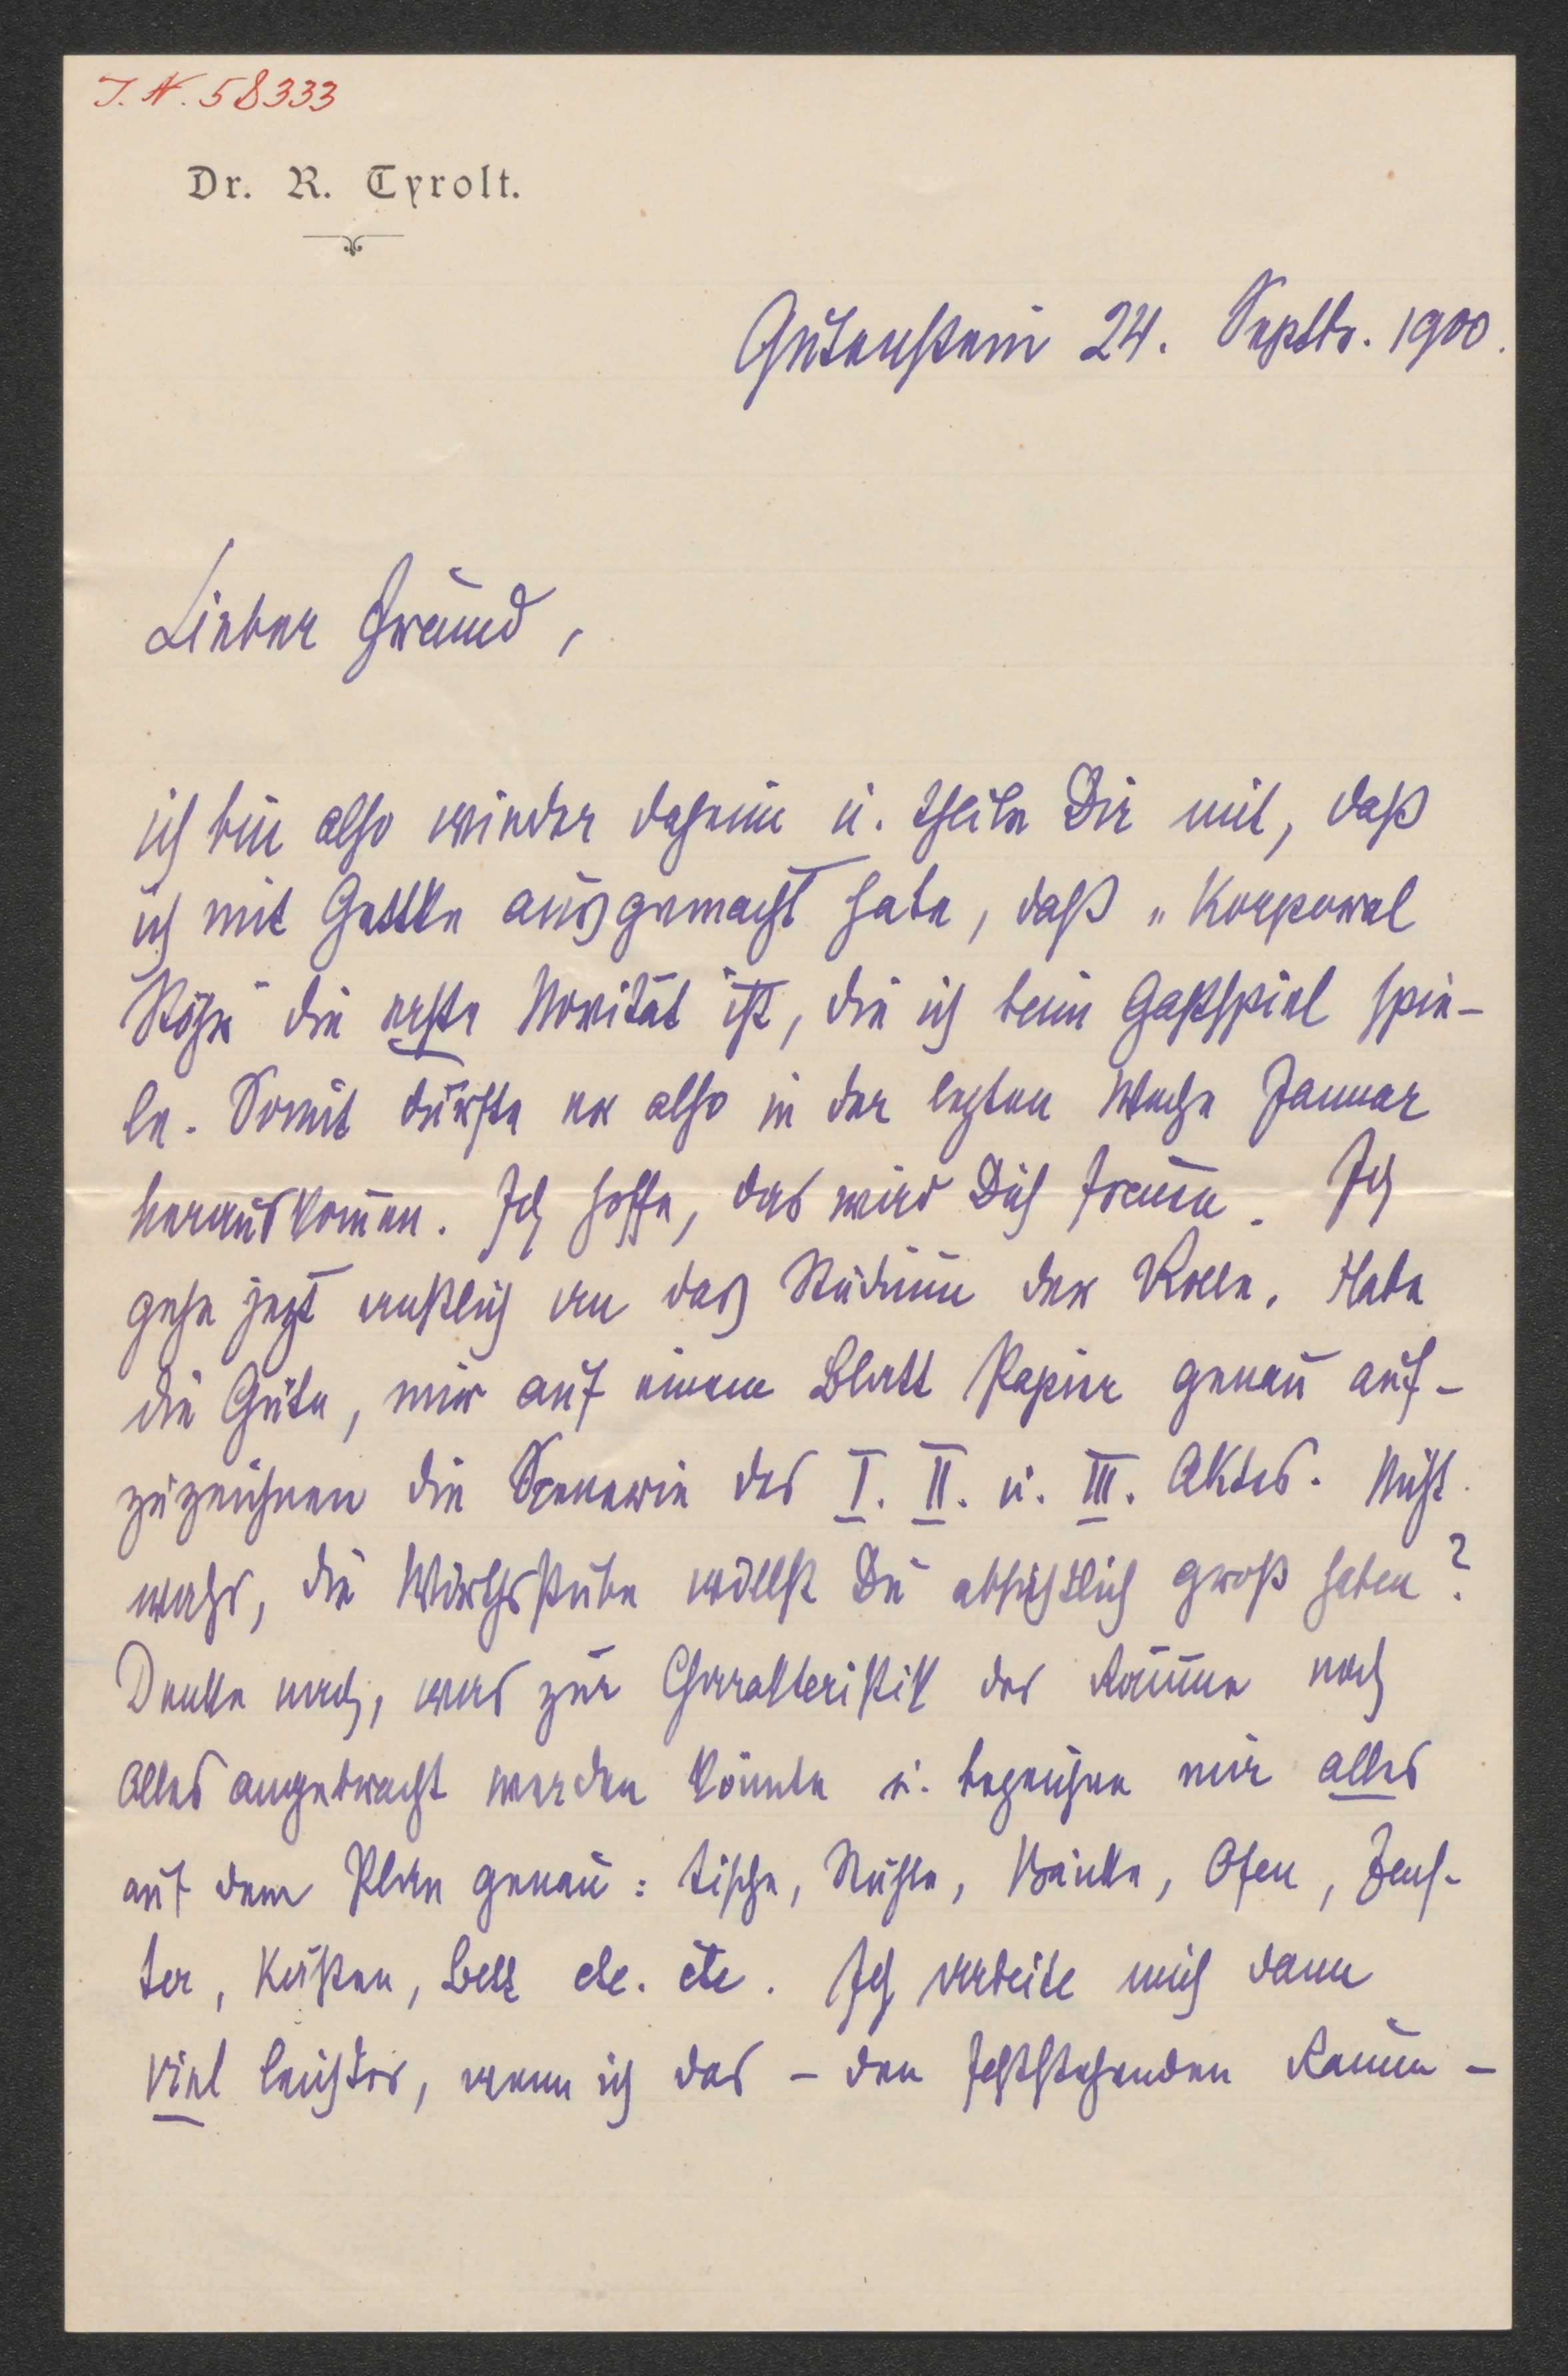 I. N. 58333
Dr. R. Tyrolt.
Gutenstein 24. Septbr. 1900.
Lieber Freund,
ich bin also wieder daheim u. theile Dir mit, daß
ich mit Gettke ausgemacht habe, daß "Korporal
Stöhr" die erste Novität ist, die ich beim Gastspiel spie-
le. Somit dürfte er also in der letzten Woche Januar
herauskommen. Ich hoffe, das wird Dich freuen. Ich
gehe jetzt ernstlich an das Studium der Rolle. Habe
die Güte, mir auf einem Blatt Papier genau auf-
zuzeichnen die Scenerie des I. II. u. III. Aktes. Nicht
wahr, die Wirthsstube willst Du absichtlich groß haben?
Denke nach, was zur Charakteristik der Räume noch
Alles angebracht werden könnte u. bezeichne mir alles
auf dem Plan genau: Tische, Stühle, Bänke, Ofen, Fens-
ter, Kästen, Bett etc. etc. Ich arbeite mich dann
viel leichter, wenn ich das – den feststehenden Raum –